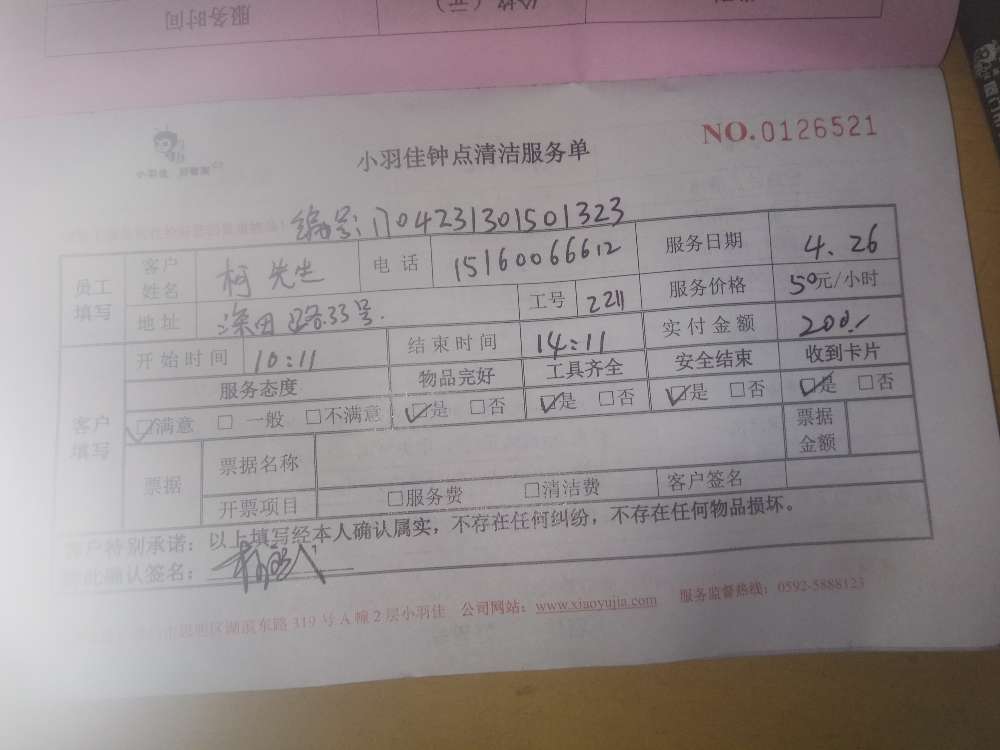 服务时间
价格（元）
小羽佳
NO.0126521
小羽佳钟点清洁服务单
编号:1704231301501323
员工填写 客户姓名 柯先生 电话 15160066612 服务日期 4.26
地址 深田路33号. 工号 2211 服务价格 50元/小时
客户填写 开始时间 10:11 结束时间 14:11 实付金额 200.-
服务态度 物品完好 工具齐全 安全结束 收到卡片
☑满意 □一般 □不满意 ☑是 □否 ☑是 □否 ☑是 □否 ☑是 □否
票据 票据名称 票据金额
开票项目 □服务费 □清洁费 客户签名
客户特别承诺：以上填写经本人确认属实，不存在任何纠纷，不存在任何物品损坏。
此确认签名：
思明区湖滨东路319号A幢2层小羽佳 公司网站：www.xiaoyujia.com 服务监督热线：0592-5888123